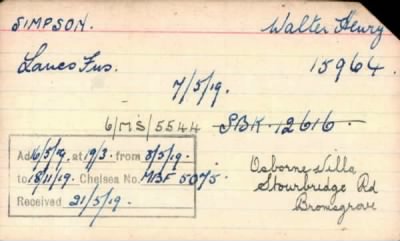 SIMPSON. Walter Henry
Lancs Fus. 15964.
7/5/19.
6/MS/5544 SBK. 12616.
Ad 16/5/19. at 19/3. from 8/5/19.
to 18/11/19. Chelsea No. MBF 5075.
Received 21/5/19.
Osborne Villa
Stourbridge Rd
Bromsgrove